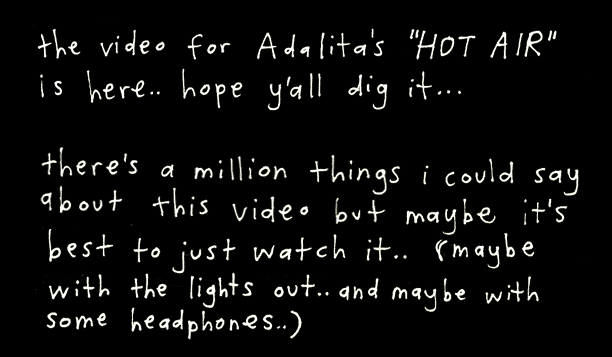 the video for Adalita's "HOT AIR"
is here.. hope y'all dig it...
there's a million things i could say
about this video but maybe it's
best to just watch it.. (maybe
with the lights out.. and maybe with
some headphones..)